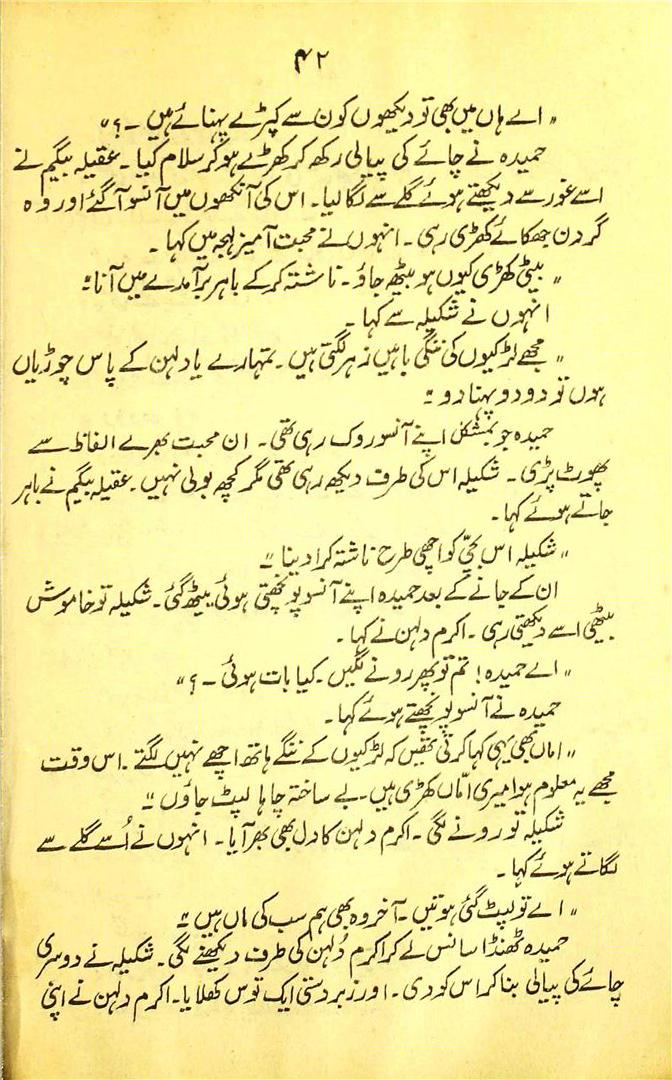 ۴۲
"اے ہاں میں بھی تو دیکھوں کون سے کپڑے پہنائے ہیں ۔ ؟"
حمیدہ نے چائے کی پیالی رکھ کر کھڑے ہو کر سلام کیا ۔ عقیلہ بیگم نے
اسے غور سے دیکھتے ہوئے گلے سے لگا لیا ۔ اس کی آنکھوں میں آنسو آ گئے اور وہ
گردن جھکائے کھڑی رہی ۔ انہوں نے محبت آمیز لہجہ میں کہا ۔
"بیٹی کھڑی کیوں ہو بیٹھ جاؤ ۔ ناشتہ کر کے باہر برآمدے میں آنا"
انہوں نے شکیلہ سے کہا ۔
"مجھے لڑکیوں کی ننگی باہیں زہر لگتی ہیں ۔ تمہارے یا دلہن کے پاس چوڑیاں
ہوں تو دو دو پہنا دو"
حمیدہ جو بمشکل اپنے آنسو روک رہی تھی ۔ ان محبت بھرے الفاظ سے
پھوٹ پڑی ۔ شکیلہ اس کی طرف دیکھ رہی تھی مگر کچھ بولی نہیں ۔ عقیلہ بیگم نے باہر
جاتے ہوئے کہا ۔
"شکیلہ اس بچی کو اچھی طرح ناشتہ کرا دینا"
ان کے جانے کے بعد حمیدہ اپنے آنسو پونچھتی ہوئی بیٹھ گئی ۔ شکیلہ تو خاموش
بیٹھی اسے دیکھتی رہی ۔ اکرم دلہن نے کہا ۔
"اے حمیدہ ! تم تو پھر رونے لگیں ۔ کیا بات ہوئی ۔ ؟"
حمیدہ نے آنسو پونچھتے ہوئے کہا ۔
"اماں بھی یہی کہا کرتی تھیں کہ لڑکیوں کے ننگے ہاتھ اچھے نہیں لگتے ۔ اس وقت
مجھے یہ معلوم ہوا میری اماں کھڑی ہیں ۔ بے ساختہ چاہا لپٹ جاؤں"
شکیلہ تو رونے لگی ۔ اکرم دلہن کا دل بھی بھر آیا ۔ انہوں نے اُسے گلے سے
لگاتے ہوئے کہا ۔
"اے تو لپٹ گئی ہوتیں ۔ آخر وہ بھی ہم سب کی ماں ہیں"
حمیدہ ٹھنڈا سانس لے کر اکرم دُلہن کی طرف دیکھنے لگی ۔ شکیلہ نے دوسری
چائے کی پیالی بنا کر اس کو دی ۔ اور زبردستی ایک توس کھلایا ۔ اکرم دلہن نے اپنی